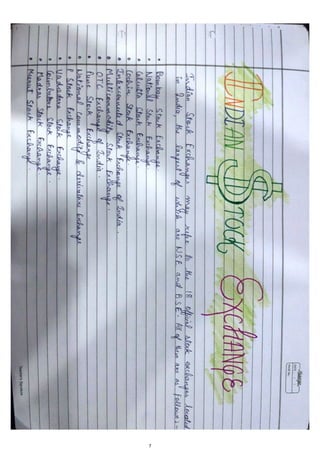 INDIAN STOCK EXCHANGE
Indian Stock Exchanges may refer to the 18 official stock exchanges located
in India, the largest of which are NSE and BSE. All of them are as follows:-
• Bombay Stock Exchange
• National Stock Exchange
• Calcutta Stock Exchange
• Cochin Stock Exchange
• Interconnected Stock Exchange of India.
• Multicommodity Stock Exchange.
• OTC Exchange of India.
• Pune Stock Exchange.
• National commodity & derivatives Exchange
• Stock Exchange
• Vadodara Stock Exchange
• Coimbatore Stock Exchange.
• Madras Stock Exchange
• Meerut Stock Exchange.
Teacher's Signature
7